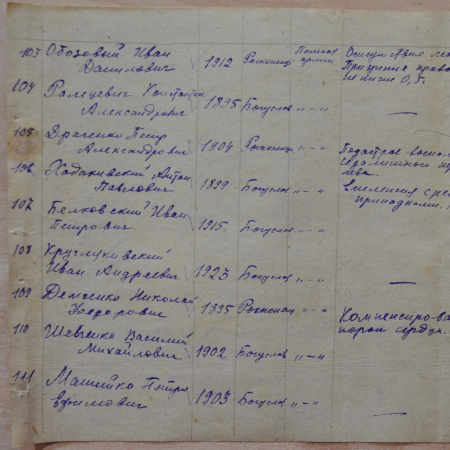 103 Обозовый Иван
Данилович 1912 Роскошна Полевая армия Отсутствие
Прицение право
не ниже 0,5.
104 Ралцевич Константин
Александрович 1895 Богуслав „ - „ —
105 Драченко Петр
Александрович 1904 Роскошна „ - „ Подострое
106 Ходаковский Антон
Павлович 1899 Богуслав „ - „
припадками.
107 Белковский Иван
Петрович 1915 Богуслав „ - „ —
108 Кругляковский
Иван Андреевич 1923 Богуслав „ - „ —
109 Демченко Николай
Федорович 1895 Роскошна „ - „ Компенсирова
порок сердца.
110 Шевченко Василий
Михайлович 1902 Богуслав „ - „
111 Мащийко Петро
Ефимович 1903 Богуслав „ - „ —